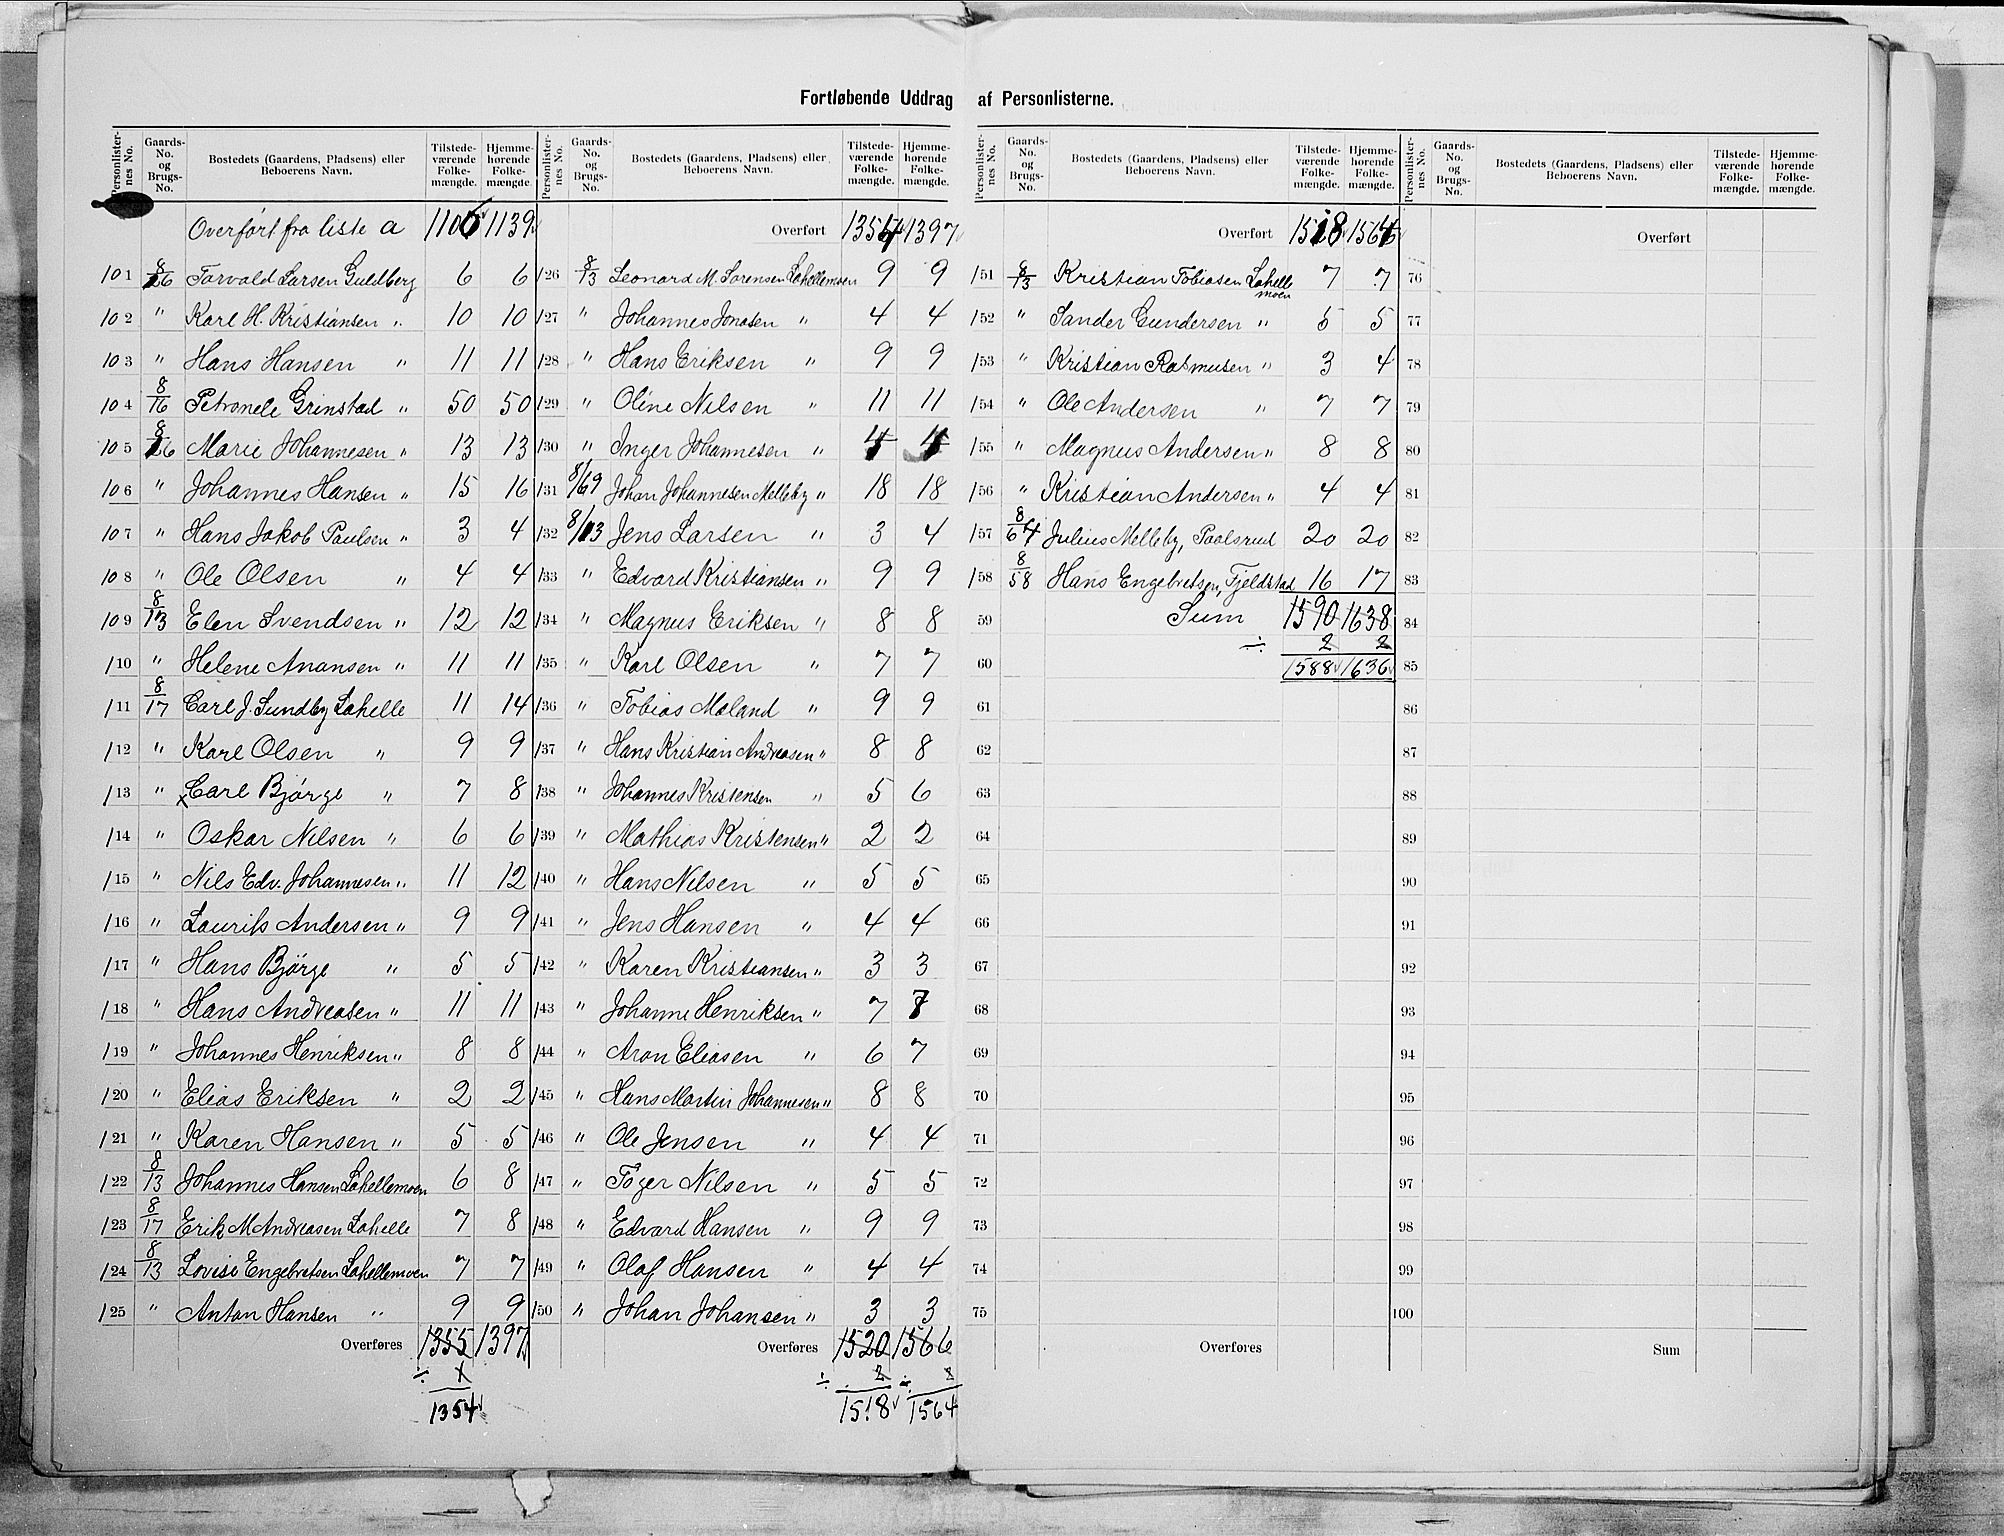 Fortløbende Uddrag af Personlisterne.
Personlisternes No. Gaards-No. og Brugs-No. Bostedets (Gaardens, Pladsens) eller Beboerens Navn. Tilstedeværende Folkemængde. Hjemmehørende Folkemængde.
Overført fra liste a 1106 1139
101 8/26 Torvald Larsen Guldberg 6 6
102 " Karl H. Kristiansen " 10 10
103 " Hans Hansen " 11 11
104 8/16 Petronele Grinstad " 50 50
105 8/26 Marie Johannesen " 13 13
106 " Johannes Hansen " 15 16
107 " Hans Jakob Paulsen " 3 4
108 " Ole Olsen " 4 4
109 8/13 Elen Svendsen " 12 12
110 " Helene Anansen " 11 11
111 8/17 Carl J. Sundby Lahelle 11 14
112 " Karl Olsen " 9 9
113 " x Carl Bjørge " 7 8
114 " Oskar Nilsen " 6 6
115 " Nils Edv. Johannesen " 11 12
116 " Laurits Andersen " 9 9
117 " Hans Bjørge " 5 5
118 " Hans Andreasen " 11 11
119 " Johannes Henriksen " 8 8
120 " Elias Eriksen " 2 2
121 " Karen Hansen " 5 5
122 8/13 Johannes Hansen Lahellemoen 6 8
123 8/17 Erik M Andreasen Lahelle 7 8
124 8/13 Lovise Engebretsen Lahellemoen 7 7
125 " Anton Hansen " 9 9
Overføres 1355 1397
÷ 1
1354
Personlisternes No. Gaards-No. og Brugs-No. Bostedets (Gaardens, Pladsens) eller Beboerens Navn. Tilstedeværende Folkemængde. Hjemmehørende Folkemængde.
Overført 1354 1397
126 8/13 Leonard M. Sorensen Lahellemoen 9 9
127 " Johannes Jonasen " 4 4
128 " Hans Eriksen " 9 9
129 " Oline Nilsen " 11 11
130 " Inger Johannesen "
131 8/69 Johan Johannesen Melleby " 18 18
132 8/13 Jens Larsen " 3 4
133 " Edvard Kristiansen " 9 9
134 " Magnus Eriksen " 8 8
135 " Karl Olsen " 7 7
136 " Tobias Maland " 9 9
137 " Hans Kristian Andreasen " 8 8
138 " Johannes Kristensen " 5 6
139 " Mathias Kristensen " 2 2
140 " Hans Nilsen " 5 5
141 " Jens Hansen " 4 4
142 " Karen Kristiansen " 3 3
143 " Johanne Henriksen " 7
144 " Aron Eliasen " 6 7
145 " Hans Martin Johannesen " 8 8
146 " Ole Jensen " 4 4
147 " Toger Nilsen " 5 5
148 " Edvard Hansen " 9 9
149 " Olaf Hansen " 4 4
150 " Johan Johansen " 3 3
Overføres 1520 1566
÷ 2 ÷ 2
1518 1564
Personlisternes No. Gaards-No. og Brugs-No. Bostedets (Gaardens, Pladsens) eller Beboerens Navn. Tilstedeværende Folkemængde. Hjemmehørende Folkemængde.
Overført 1518 1564
151 8/13 Kristian Tobiasen Lahellemoen 7 7
152 " Sander Gundersen " 5 5
153 " Kristian Rasmusen " 3 4
154 " Ole Andersen " 7 7
155 " Magnus Andersen " 8 8
156 " Kristian Andersen " 4 4
157 8/64 Julius Melleby, Paalsrud 20 20
158 8/58 Hans Engebretsen, Fjeldstad 16 17
59 Sum 1590 1638
÷ 2 2
60 1588 1636
61
62
63
64
65
66
67
68
69
70
71
72
73
74
75
Overføres
Personlisternes No. Gaards-No. og Brugs-No. Bostedets (Gaardens, Pladsens) eller Beboerens Navn. Tilstedeværende Folkemængde. Hjemmehørende Folkemængde.
Overført
76
77
78
79
80
81
82
83
84
85
86
87
88
89
90
91
92
93
94
95
96
97
98
99
100
Sum